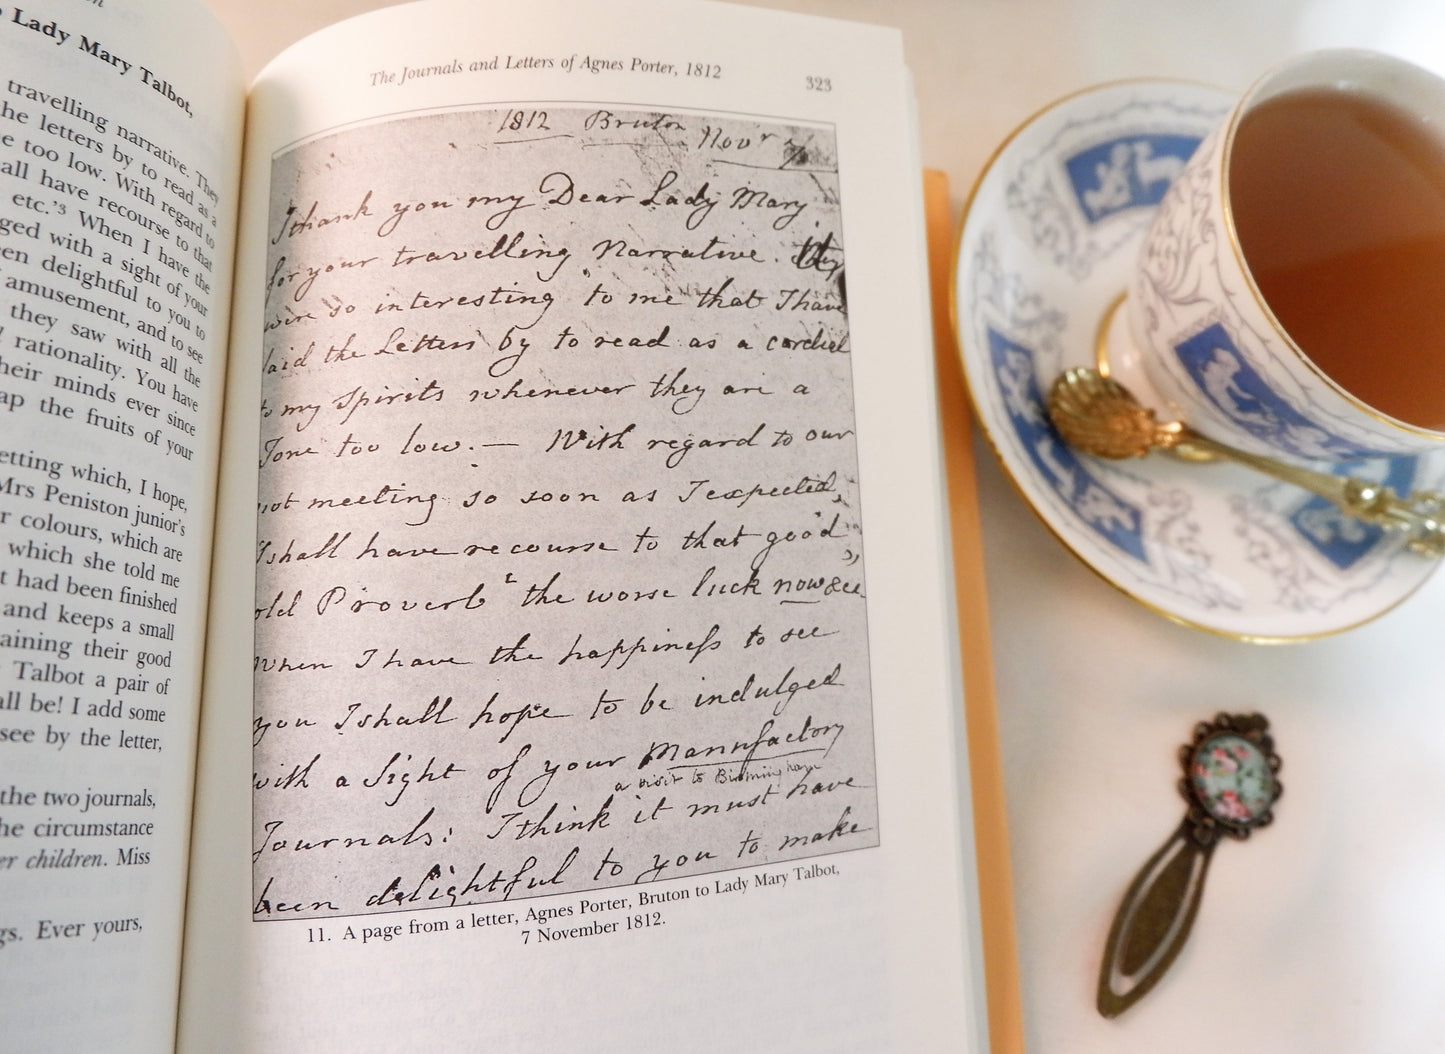 Lady Mary Talbot,
travelling narrative. They
he letters by to read as a
e too low. With regard to
all have recourse to that
etc.'³ When I have the
ged with a sight of your
en delightful to you to
amusement, and to see
they saw with all the
rationality. You have
heir minds ever since
ap the fruits of your
etting which, I hope,
Mrs Peniston junior's
r colours, which are
which she told me
t had been finished
and keeps a small
aining their good
Talbot a pair of
all be! I add some
see by the letter,
the two journals,
he circumstance
er children. Miss
gs. Ever yours,
The Journals and Letters of Agnes Porter, 1812
323
1812 Bruton Novr 7
I thank you my Dear Lady Mary
for your travelling Narrative. they
were so interesting to me that I have
laid the Letters by to read as a cordiel
to my Spirits whenever they are a
Tone too low. — With regard to our
not meeting so soon as I expected,
I shall have recourse to that good
old Proverb "the worse luck now &c.
When I have the happiness to see
you I shall hope to be indulged
with a Sight of your Mannfactory
a visit to Birmingham
Journals: I think it must have
been delightful to you to make
11. A page from a letter, Agnes Porter, Bruton to Lady Mary Talbot,
7 November 1812.